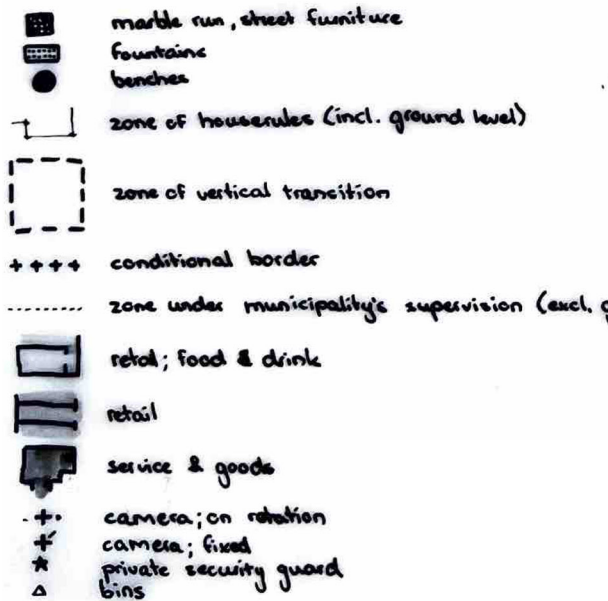 marble run, street furniture
fountains
benches
zone of houserules (incl. ground level)
zone of vertical transition
conditional border
zone under municipality's supervision (excl. g
retail; food & drink
retail
service & goods
camera; on rotation
camera; fixed
private security guard
bins